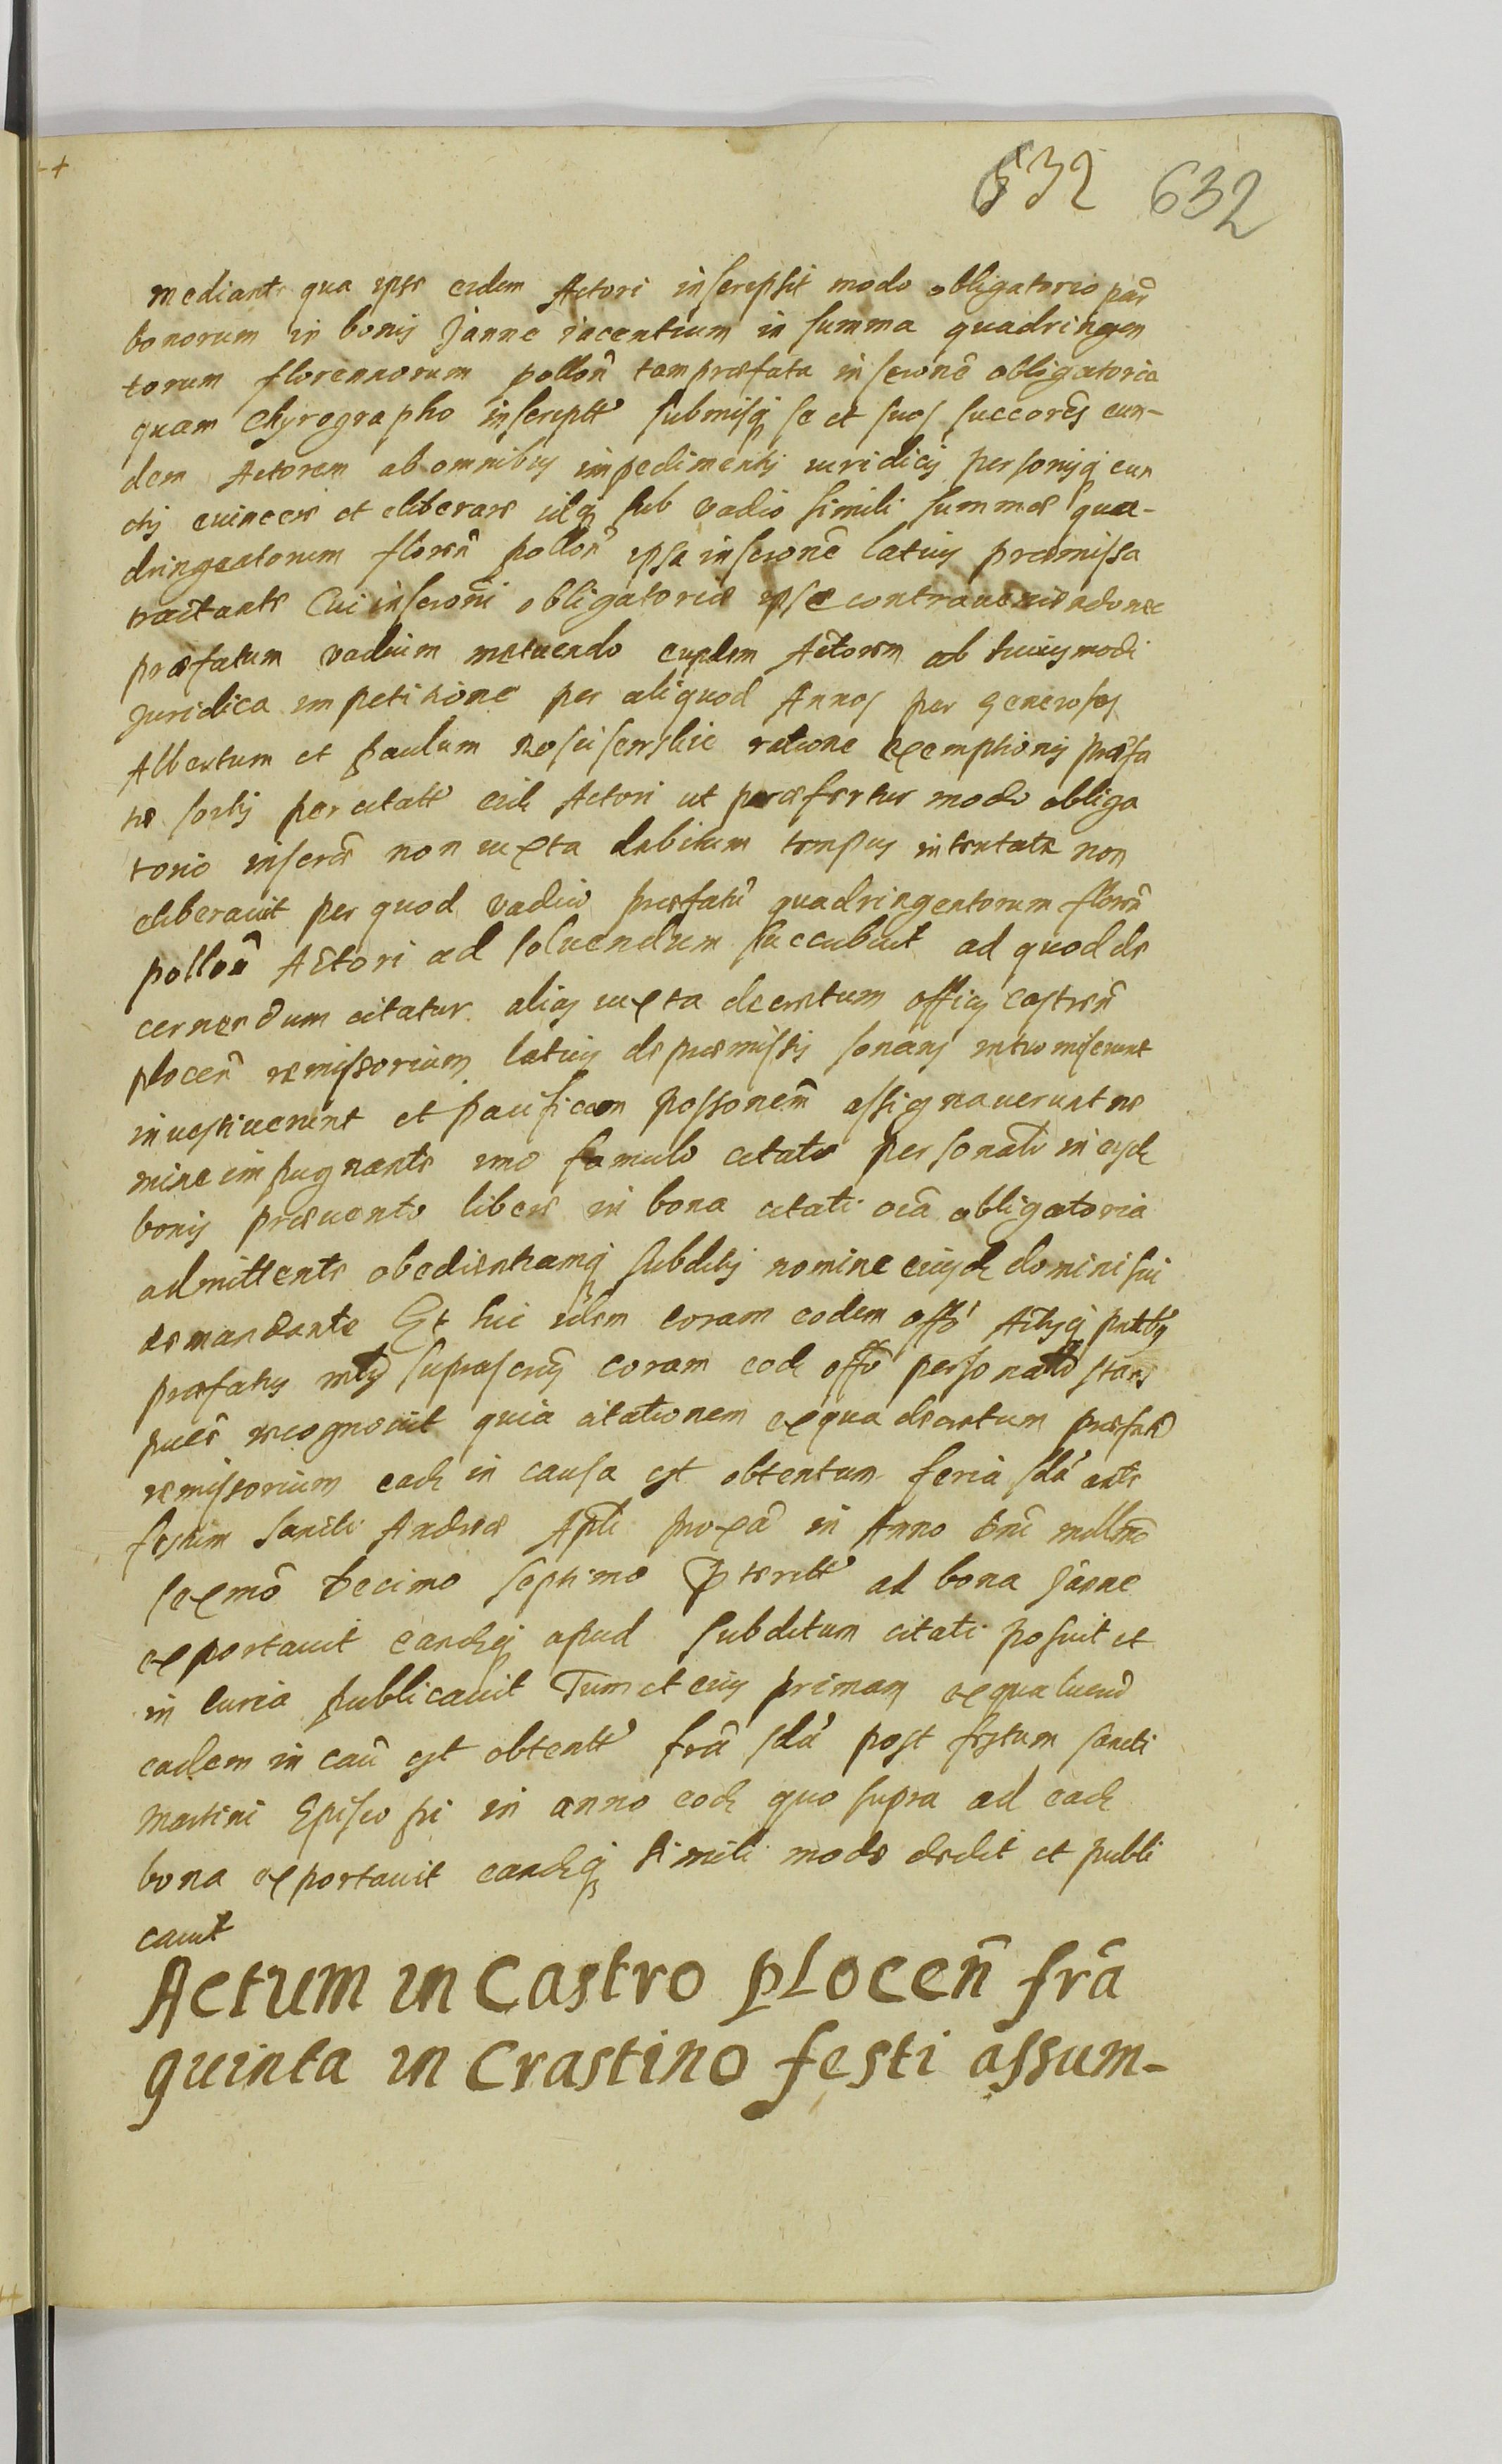 632 632
mediante qua ipse eidem Actori inscripsit modo obligatorio par̃
bonorum in bonis Janne iacentium in summa quadringen
torum florennorum pollon̄ tam præfata inscrone obligatoria
quam Chyrographo inscriptt submisitq se et suos succores eun-
dem Actorem ab omnibus impedimentis iuridicis personisq cun
ctis euincere et eliberare idq sub vadio simili summæ qua-
dringentorum floren̄ pollon̄ ipsa inscrone latius præmissa
tractante Cui inscroni obligatoriæ ipse contraueniendo nec
præfatum vadium metuendo eundem Actorem ab huiusmodi
Juridica impetitione per aliquod Annos per generosos
Albertum et paulum ratione exemptionis præfa
tæ sortis per citatt eid Actori ut præfertur modo obliga
torio inscræ non iuxta debitum tempus intentata non
eliberauit per quod vadio præfato quadringentorum floren̄
pollon̄ Actori ad soluendum succubuit ad quod de
cernendum citatur alias iuxta decretum officij castren̄
plocen̄ remissorium latius de præmissis sonans intromiserunt
inuestiuerunt et pacificam possonem assignauerunt ne
mine impugnante imo famulo citati personalr in eisd
bonis præuento libere in bona citati oīa obligatoria
admittente obedientiamq subditis nomine eiusd domini sui
demandante Et hic idem coram eodem offo Actisq pntibus
præfatus mlis suprascrus coram eod offo personalr stans
publ̄ recognouit quia citationem ex qua decretum præfatũ
remissorium ead in causa est obtentum feria sda ante
festum Sancti Andreæ Apli proxa in Anno Dni millmo
sexmo decimo septimo ad bona Janne
exportauit eandq apud subditum citati posuit et
in curia publicauit Tum et eius primam ex qua lucrũ
eadem in caũ est obtentt fra sda post festum sancti
Martini Episcopi in anno eod quo supra ad ead
bona exportauit eandq simili modo dedit et publi
cauit
Actum in Castro plocen̄ fr̃a
quinta in Crastino festi assum-